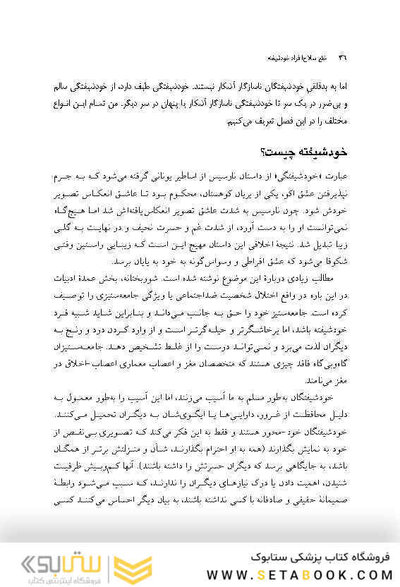 ۳۶ خلع سلاح افراد خودشیفته
اما به بدقلقیِ خودشیفتگان ناسازگار آشکار نیستند. خودشیفتگی طیف دارد، از خودشیفتگی سالم
و بی‌ضرر در یک سر تا خودشیفتگی ناسازگار آشکار یا پنهان در سر دیگر. من تمام این انواع
مختلف را در این فصل تعریف می‌کنم.
خودشیفته چیست؟
عبارت «خودشیفتگی» از داستان نارسیس از اساطیر یونانی گرفته می‌شود که به جرم
نپذیرفتن عشق اکو، یکی از پریان کوهستان، محکوم بود تا عاشق انعکاس تصویر
خودش شود. چون نارسیس به شدت عاشق تصویر انعکاس‌یافته‌اش شد اما هیچ‌گاه
نمی‌توانست او را به دست آورد، از شدت غم و حسرت نحیف و در نهایت به گلی
زیبا تبدیل شد. نتیجهٔ اخلاقی این داستان مهیج این است که زیبایی راستین وقتی
شکوفا می‌شود که عشق افراطی و وسواس‌گونه به خود به پایان برسد.
مطالب زیادی دربارهٔ این موضوع نوشته شده است. شوربختانه، بخش عمدهٔ ادبیات
در این باره در واقع اختلال شخصیت ضداجتماعی یا ویژگی جامعه‌ستیزی را توصیف
کرده است. جامعه‌ستیز خود را حق به جانب می‌داند و بنابراین شاید شبیه فرد
خودشیفته باشد، اما پرخاشگرتر و حیله‌گرتر است و از وارد کردن درد و رنج به
دیگران لذت می‌برد و نمی‌تواند درست را از غلط تشخیص دهد. جامعه‌ستیزان
گاه‌وبی‌گاه فاقد چیزی هستند که متخصصان مغز و اعصاب معماری اعصاب-اخلاق در
مغز می‌نامند.
خودشیفتگان به‌طور مسلم به ما آسیب می‌زنند، اما این آسیب را به‌طور معمول به
دلیل محافظت از غرور، دارایی‌ها یا ایگوی‌شان به دیگران تحمیل می‌کنند.
خودشیفتگان خود-محور هستند و فقط به این فکر می‌کند که تصویری بی‌نقص از
خود به نمایش بگذارند (همه به او احترام بگذارند، شأن و منزلتش برتر از همگان
باشد، به جایگاهی برسد که دیگران حسرتش را داشته باشند). آنها کم‌وبیش ظرفیت
شنیدن، اهمیت دادن یا درک نیازهای دیگران را ندارند، که سبب می‌شود رابطهٔ
صمیمانهٔ حقیقی و صادقانه با کسی نداشته باشند، به بیان دیگر احساس می‌کنند کسی
فروشگاه کتاب پزشکی ستابوک
WWW.SETABOOK.COM
ستابوک
فروشگاه اینترنتی کتاب